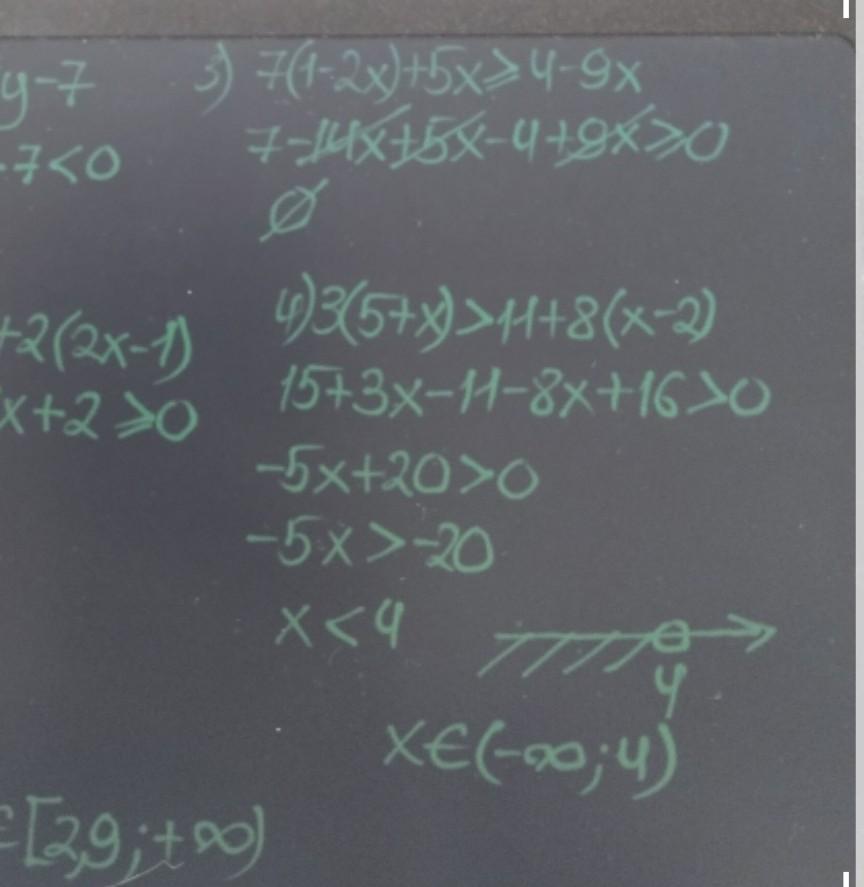 y-7
-7<0
3) 7(1-2x)+5x⩾4-9x
7-14x+5x-4+9x⩾0
∅
+2(2x-1)
x+2⩾0
4)3(5+x)>11+8(x-2)
15+3x-11-8x+16>0
-5x+20>0
-5x>-20
x<4
4
x∈(-∞;4)
∈[2,9;+∞)